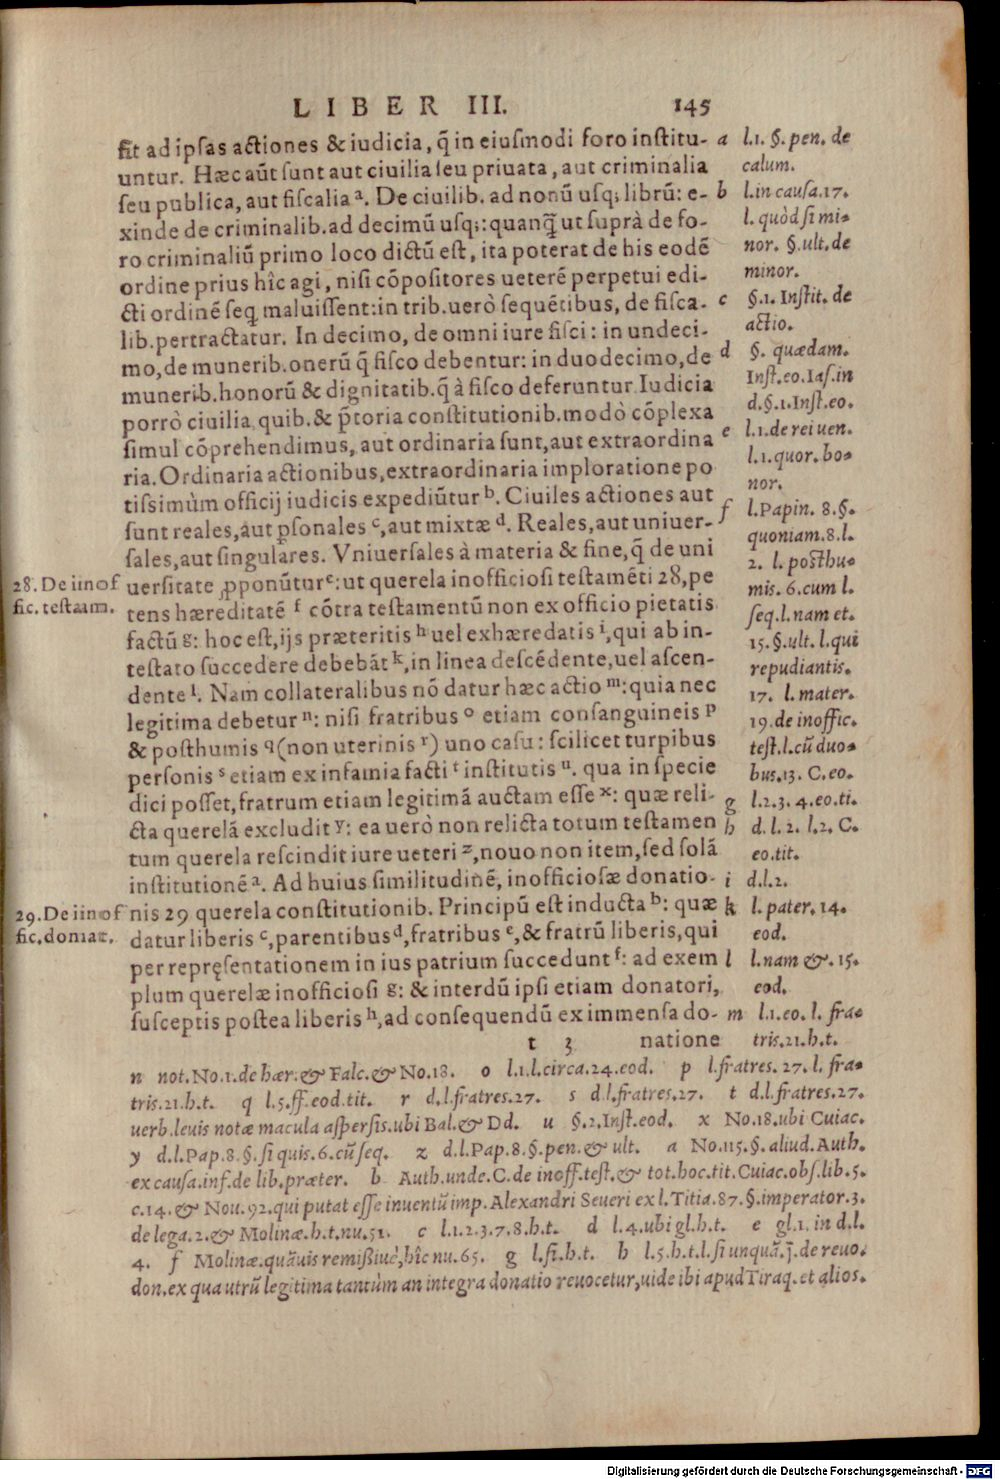 LIBER III. 145
fit ad ipsas actiones & iudicia, q̄ in eiusmodi foro institu-
untur. Hæc aūt sunt aut ciuilia seu priuata, aut criminalia
seu publica, aut fiscalia a. De ciuilib. ad nonū usq; librū: e-
xinde de criminalib. ad decimū usq;: quanq̄ ut suprà de fo-
ro criminaliū primo loco dictū est, ita poterat de his eodē
ordine prius hîc agi, nisi cōpositores ueterē perpetui edi-
cti ordinē seq̄ maluissent: in trib. uerò sequētibus, de fisca-
lib. pertractatur. In decimo, de omni iure fisci: in undeci-
mo, de munerib. onerū q̄ fisco debentur: in duodecimo, de
munerib. honorū & dignitatib. q̄ à fisco deferuntur. Iudicia
porrò ciuilia, quib. & p̄toria constitutionib. modò cōplexa
simul cōprehendimus, aut ordinaria sunt, aut extraordina
ria. Ordinaria actionibus, extraordinaria imploratione po
tissimùm officij iudicis expediūtur b. Ciuiles actiones aut
sunt reales, aut psonales c, aut mixtæ d. Reales, aut uniuer-
sales, aut singulares. Vniuersales à materia & fine, q̄ de uni
uersitate pponūtur e: ut querela inofficiosi testamēti 28, pe
tens hæreditatē f cōtra testamentū non ex officio pietatis
factū g: hoc est, ijs præteritis h uel exhæredatis i, qui ab in-
testato succedere debebāt k, in linea descēdente, uel ascen-
dente l. Nam collateralibus nō datur hæc actio m: quia nec
legitima debetur n: nisi fratribus o etiam consanguineis p
& posthumis q (non uterinis r) uno casu: scilicet turpibus
personis s etiam ex infamia facti t institutis u. qua in specie
dici posset, fratrum etiam legitimā auctam esse x: quæ reli-
cta querelā excludit y: ea uerò non relicta totum testamen
tum querela rescindit iure ueteri z, nouo non item, sed solā
institutionē a. Ad huius similitudinē, inofficiosæ donatio-
nis 29 querela constitutionib. Principū est inducta b: quæ
datur liberis c, parentibus d, fratribus e, & fratrū liberis, qui
per repręsentationem in ius patrium succedunt f: ad exem
plum querelæ inofficiosi g: & interdū ipsi etiam donatori,
susceptis postea liberis h, ad consequendū ex immensa do-
t 3 natione
28. De iinof
fic. testam.
29. De iinof
fic. doniat.
a l.1. §. pen. de
calum.
b l.in causa.17.
l. quòd si mi-
nor. §. ult. de
minor.
c §.1. Instit. de
actio.
d §. quædam.
Inst. eo. Ias. in
d.§.1. Inst. eo.
e l.1. de rei uen.
l.1. quor. bo-
nor.
f l. Papin. 8. §.
quoniam. 8. l.
2. l. posthu-
mis. 6. cum l.
seq. l. nam et.
15. §. ult. l. qui
repudiantis.
17. l. mater.
19. de inoffic.
test. l. cū duo-
bus. 13. C. eo.
g l.2.3. 4. eo. ti.
h d. l. 2. l. 2. C.
eo. tit.
i d.l.2.
k l. pater. 14.
eod.
l l. nam &. 15.
eod.
m l.1. eo. l. fra-
tris. 21. h. t.
n not. No. 1. de hær. & Falc. & No. 18. o l.1. l. circa. 24. eod. p l. fratres. 27. l. fra-
tris. 21. h. t. q l. 5. ff. eod. tit. r d. l. fratres. 27. s d. l. fratres. 27. t d. l. fratres. 27.
uerb. leuis notæ macula aspersis. ubi Bal. & Dd. u §. 2. Inst. eod. x No. 18. ubi Cuiac.
y d. l. Pap. 8. §. si quis. 6. cū seq. z d. l. Pap. 8. §. pen. & ult. a No. 115. §. aliud. Auth.
ex causa. inf. de lib. præter. b Auth. unde. C. de inoff. test. & tot. hoc. tit. Cuiac. obs. lib. 5.
c. 14. & Nou. 92. qui putat esse inuentū imp. Alexandri Seueri ex l. Titia. 87. §. imperator. 3.
de lega. 2. & Molinæ. h. t. nu. 51. c l. 1. 2. 3. 7. 8. h. t. d l. 4. ubi gl. h. t. e gl. 1. in d. l.
4. f Molinæ. quāuis remißiue, hîc nu. 65. g l. fi. h. t. h l. 5. h. t. l. si unquā. j. de reuo.
don. ex qua utrū legitima tantùm an integra donatio reuocetur, uide ibi apud Tiraq. et alios.
Digitalisierung gefördert durch die Deutsche Forschungsgemeinschaft - DFG